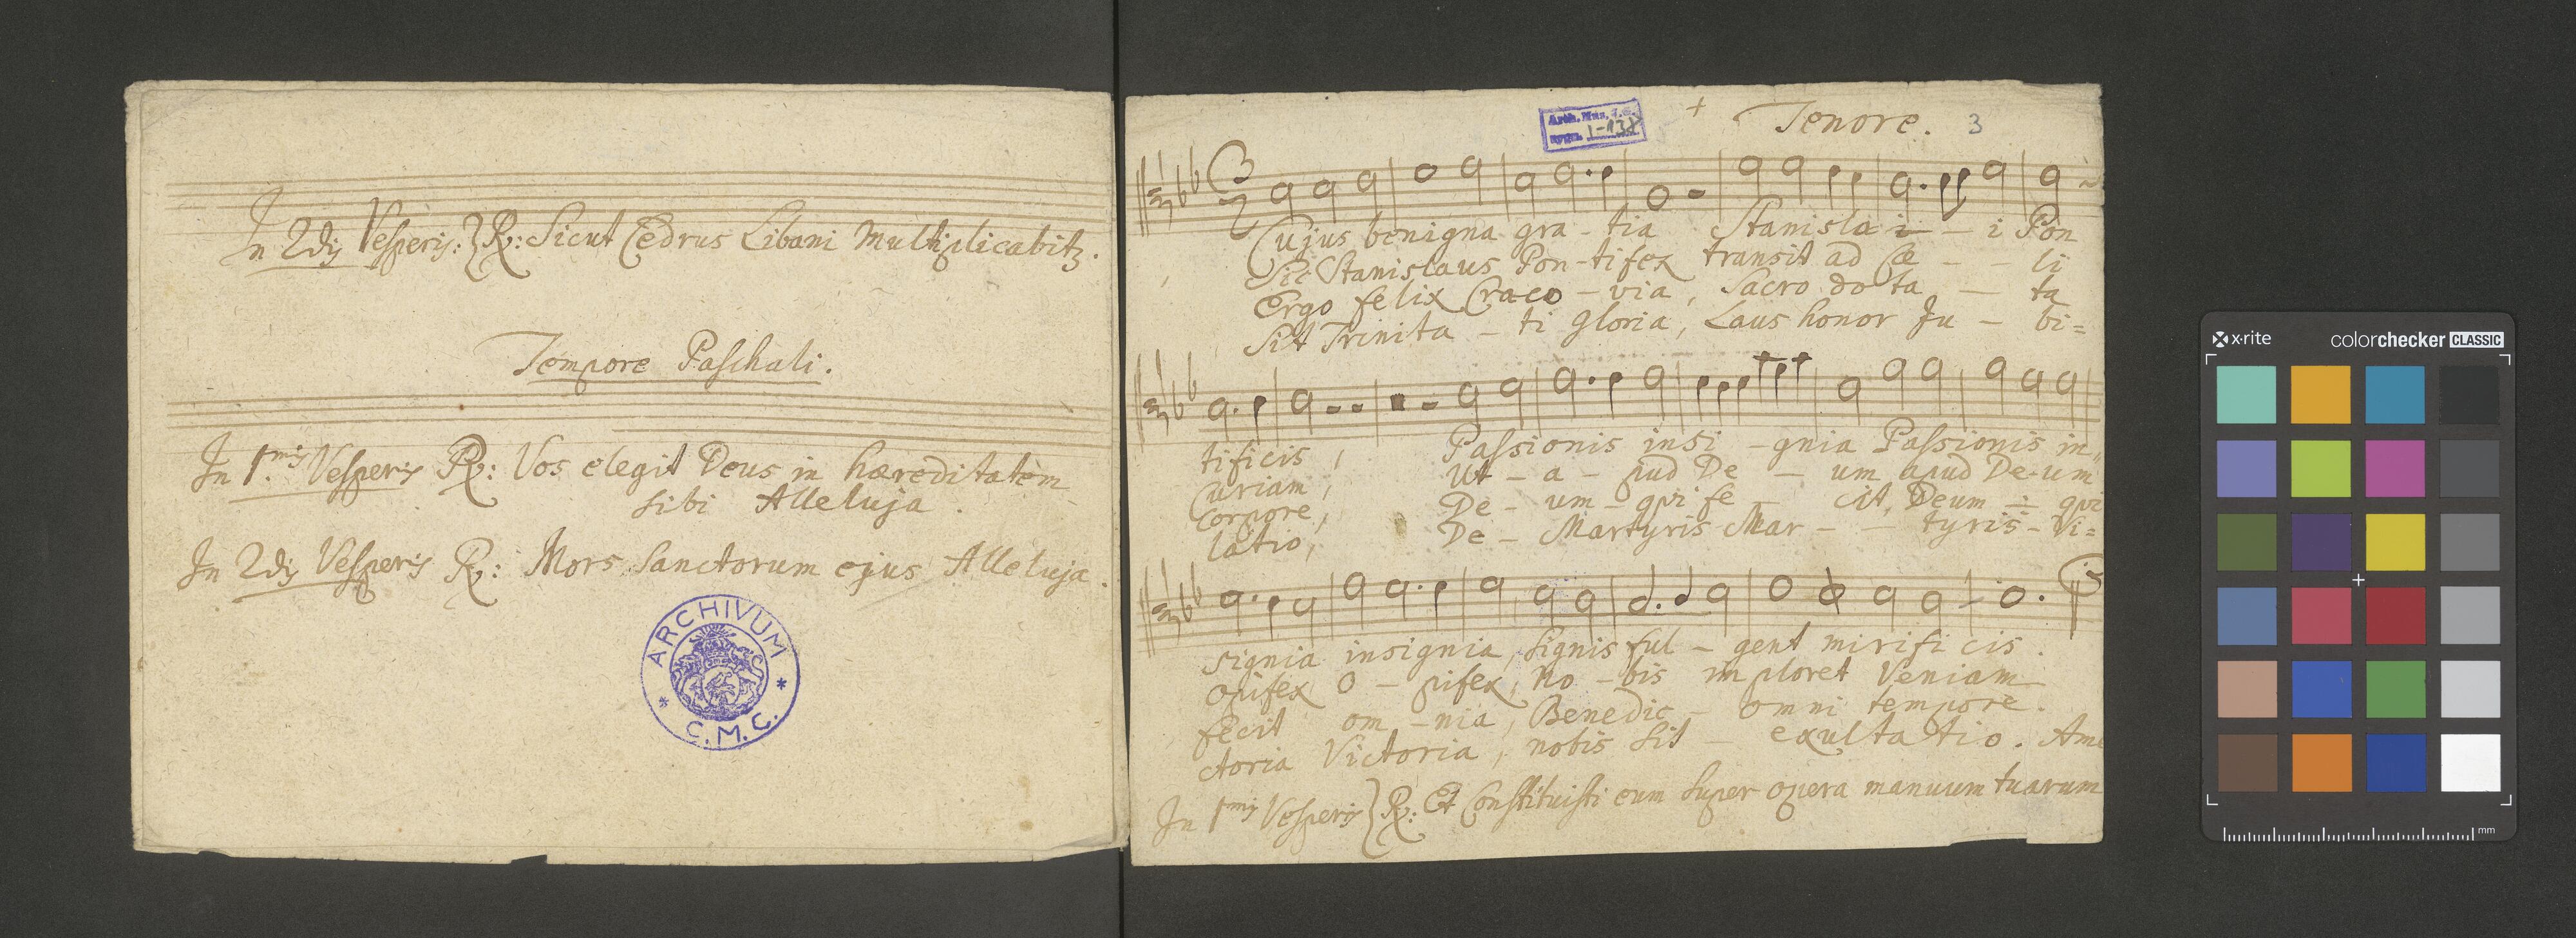 In 2dis Vesperis: } R: Sicut Cedrus Libani multiplicabitz.
Tempore Paschali.
In 1.mis Vesperis R: Vos elegit Deus in hæreditatem
sibi Alleluja.
In 2dis Vesperis R: Mors Sanctorum ejus Alleluja.
ARCHIVUM
* C.M.C. *
Arch. Mus.
sygn. I-138
+ Tenore. 3
Cujus benigna gra - tia Stanisla i - i Pon
Sic Stanislaus Pon - tifex transit ad Cæ - - li
Ergo felix Craco - via, Sacro dota - ta
Sit Trinita - ti gloria, Laus honor Ju - bi=
tificis, Passionis insi - gnia Passionis in
Curiam, Ut - a - pud De - um apud De-um
Corpore, De - um - qvi fe - cit, Deum - qvi
latio, De - Martyris Mar - - tyris - Vi=
signia insignia, signis ful - gent mirificis.
opifex O - pifex, no - bis imploret Veniam
fecit om - nia, Benedic - omni tempore.
ctoria Victoria, nobis sit - exultatio. Ame
In 1mis Vesperis } R: Et Constituisti eum super opera manuum tuarum
x·rite colorchecker CLASSIC
mm